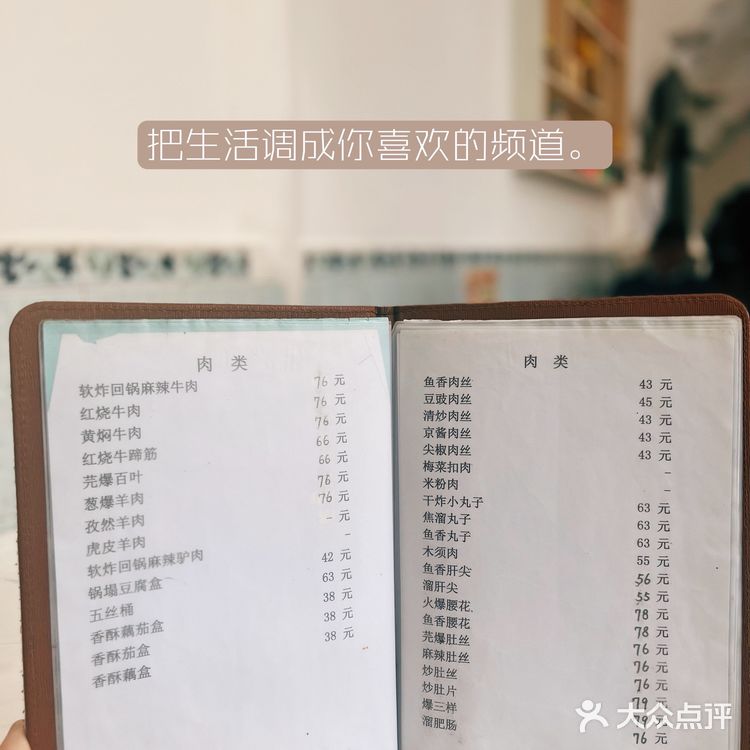 把生活调成你喜欢的频道。
肉 类
软炸回锅麻辣牛肉 76 元
红烧牛肉 76 元
黄焖牛肉 76 元
红烧牛蹄筋 66 元
芫爆百叶 66 元
葱爆羊肉 76 元
孜然羊肉 76 元
虎皮羊肉 - 元
软炸回锅麻辣驴肉 -
锅塌豆腐盒 42 元
五丝桶 63 元
香酥藕茄盒 38 元
香酥茄盒 38 元
香酥藕盒 38 元
肉 类
鱼香肉丝 43 元
豆豉肉丝 45 元
清炒肉丝 43 元
京酱肉丝 43 元
尖椒肉丝 43 元
梅菜扣肉 -
米粉肉 -
干炸小丸子 63 元
焦溜丸子 63 元
鱼香丸子 63 元
木须肉 55 元
鱼香肝尖 56 元
溜肝尖 55 元
火爆腰花 78 元
鱼香腰花 78 元
芫爆肚丝 76 元
麻辣肚丝 76 元
炒肚丝 76 元
炒肚片 79 元
爆三样
溜肥肠 76 元
大众点评